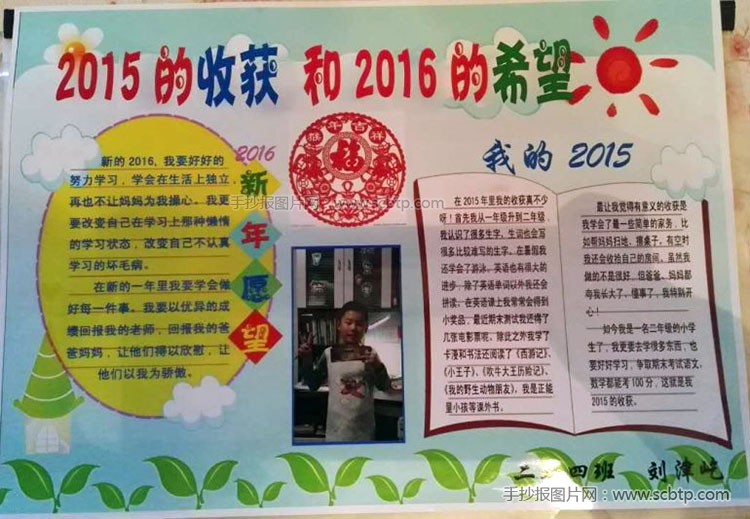 2015 的收获 和 2016 的希望
2016
新年愿望
新的 2016、我要好好的
努力学习，学会在生活上独立，
再也不让妈妈为我操心。我更
要改变自己在学习上那种懒惰
的学习状态，改变自己不认真
学习的坏毛病。
在新的一年里我要学会做
好每一件事。我要以优异的成
绩回报我的老师，回报我的爸
爸妈妈，让他们得以欣慰，让
他们以我为骄傲。
猴年吉祥
福
手抄报图片网：www.scbtp.com
我的 2015
在 2015 年里我的收获真不少
呀！首先我从一年级升到二年级、
我认识了很多生字、生词也会写
很多比较难写的生字。在暑假我
还学会了游泳。英语也有很大的
进步，除了英语单词以外我还会
拼读。在英语课上我常常会得到
小奖品，最近期末测试我还得了
几张电影票呢。除此之外我学了
卡漫和书法还阅读了《西游记》、
《小王子》、《吹牛大王历险记》、
《我的野生动物朋友》、我是正能
量小孩等课外书。
最让我觉得有意义的收获是
我学会了最一些简单的家务，比
如帮妈妈扫地、擦桌子。有空时
我还会收拾自己的房间。虽然我
做的不是很好，但爸爸、妈妈都
夸我长大了、懂事了，我特别开
心！
如今我是一名二年级的小学
生了，我更要去学很多东西，也
要好好学习，争取期末考试语文、
数学都能考 100 分，这就是我
2015 的收获。
二、四班 刘漳屹
手抄报图片网：www.scbtp.com